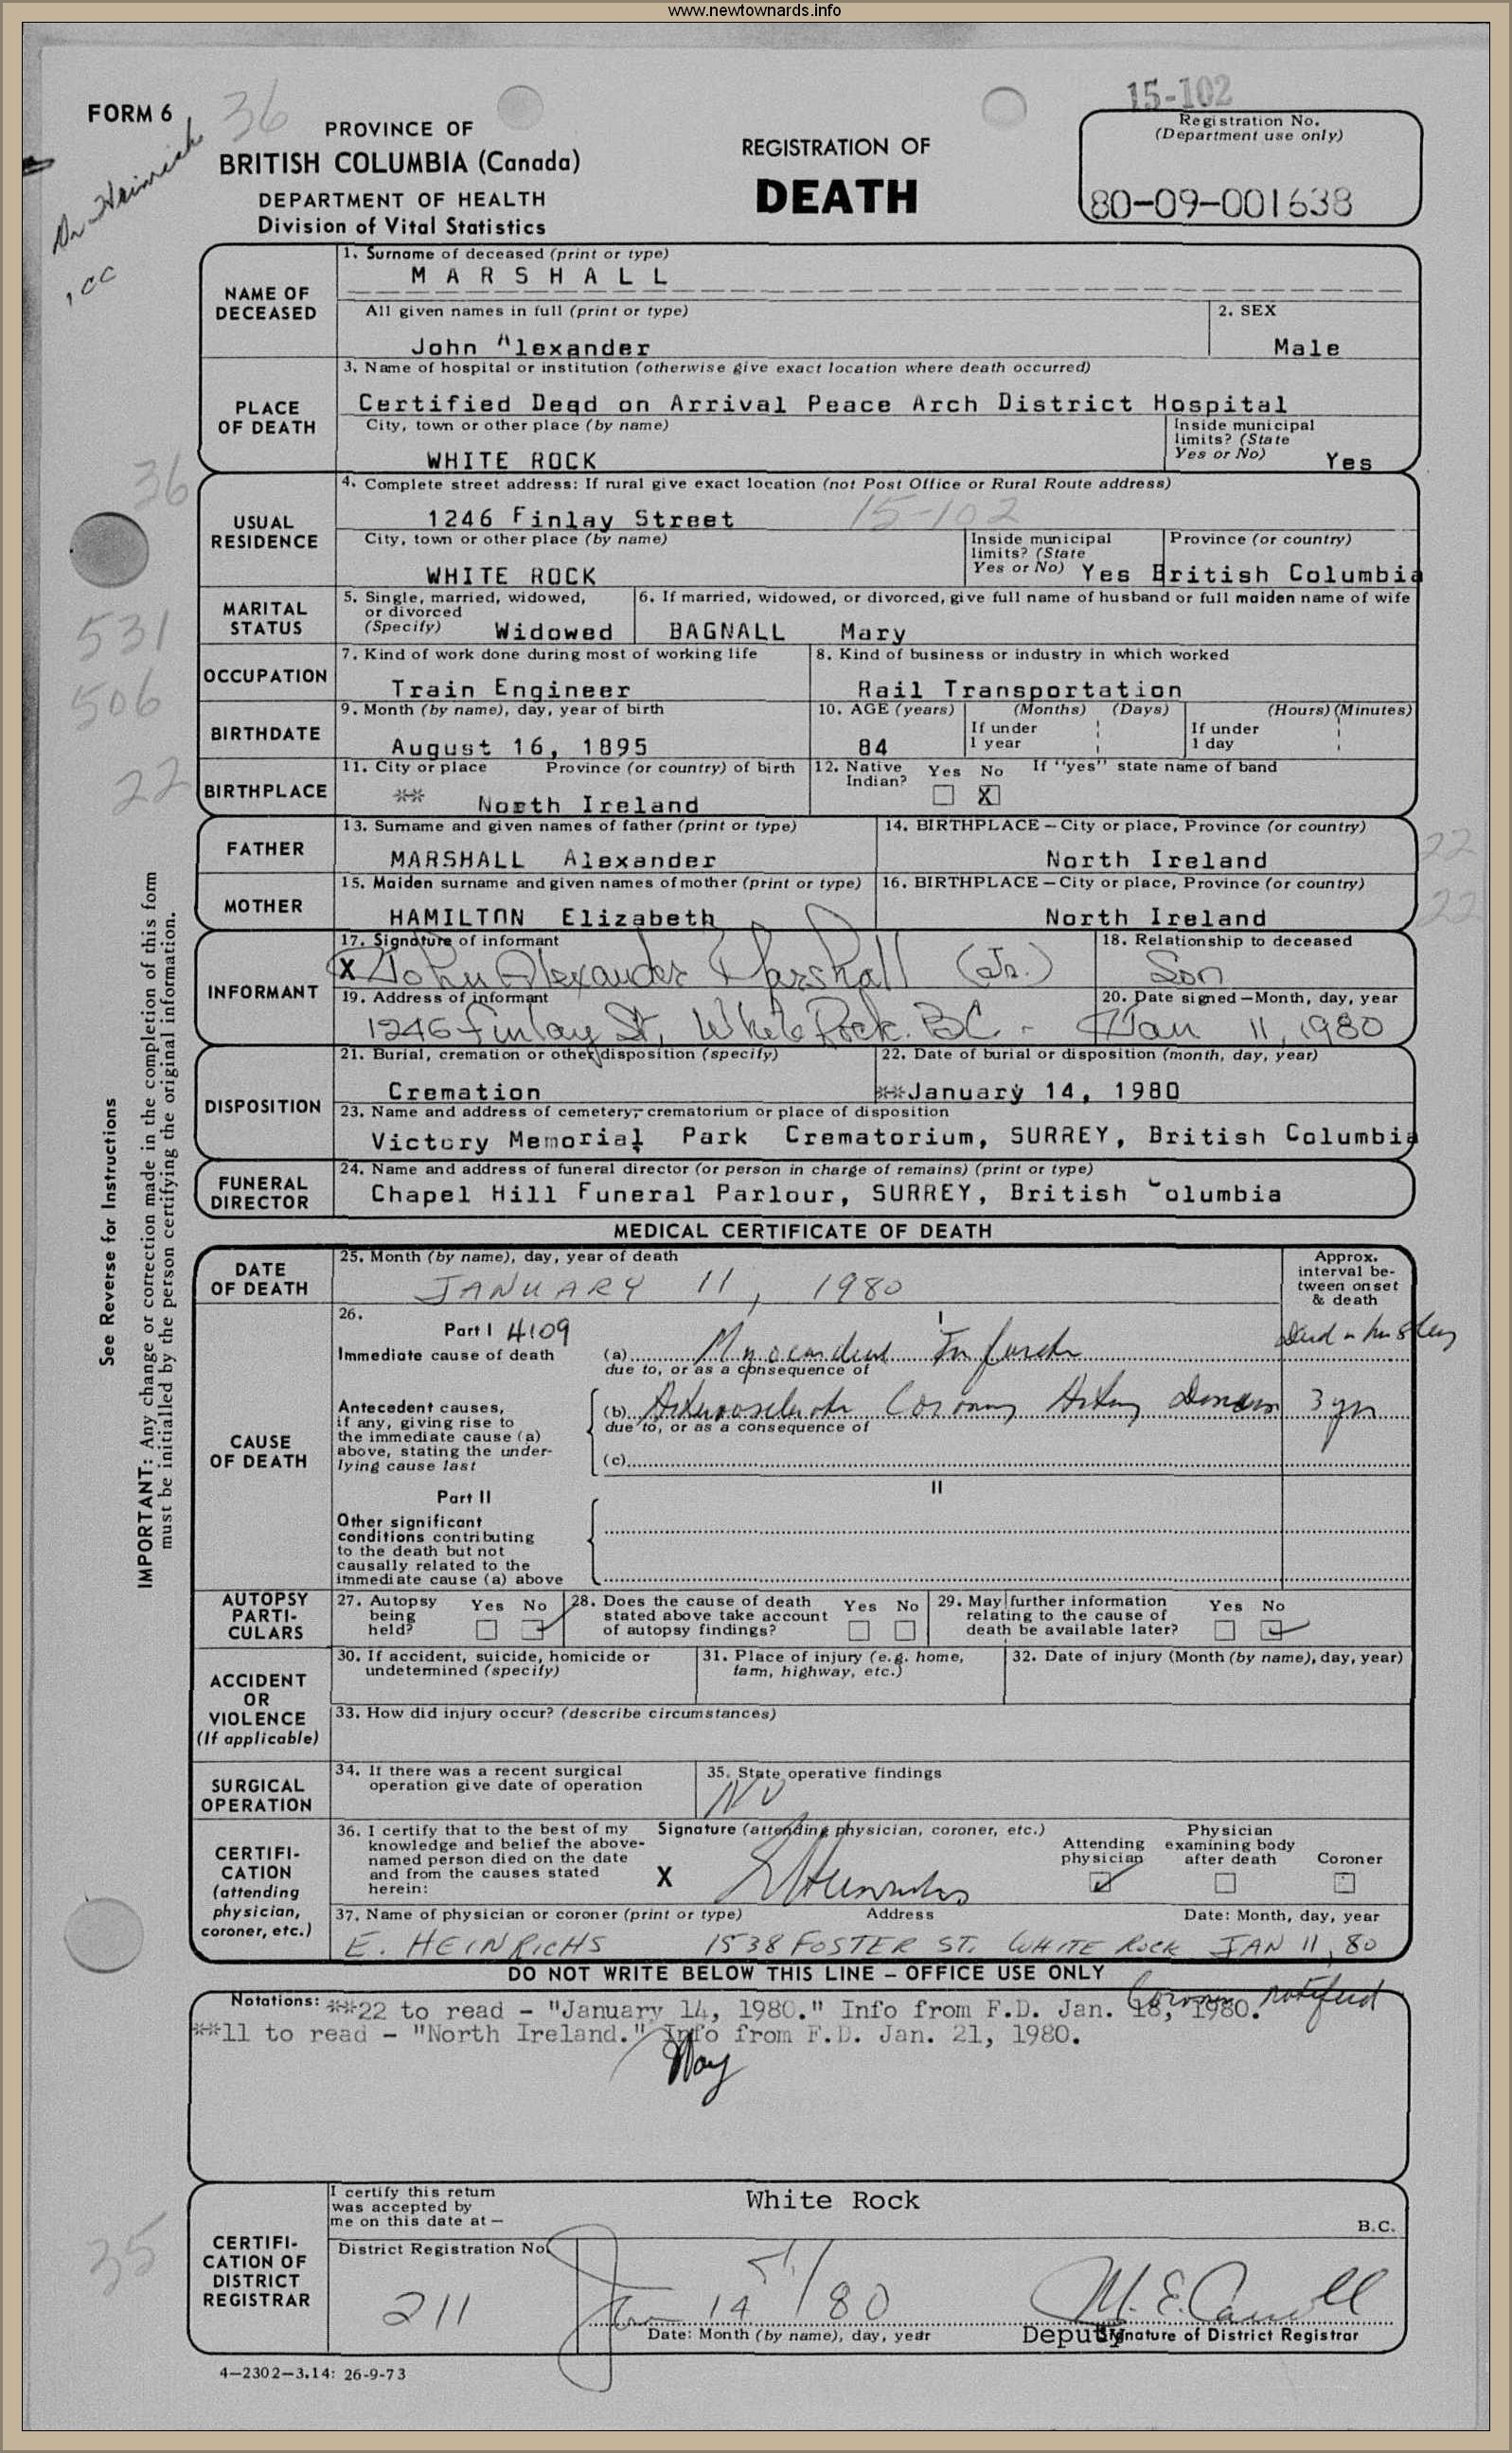 www.newtownards.info
15-102
FORM 6
36
Dr Heinrich
1 CC
PROVINCE OF
BRITISH COLUMBIA (Canada)
DEPARTMENT OF HEALTH
Division of Vital Statistics
REGISTRATION OF
DEATH
Registration No.
(Department use only)
80-09-001638
NAME OF DECEASED
1. Surname of deceased (print or type)
MARSHALL
All given names in full (print or type)
John Alexander
2. SEX
Male
PLACE OF DEATH
3. Name of hospital or institution (otherwise give exact location where death occurred)
Certified Dead on Arrival Peace Arch District Hospital
City, town or other place (by name)
WHITE ROCK
Inside municipal limits? (State Yes or No)
Yes
36
USUAL RESIDENCE
4. Complete street address: If rural give exact location (not Post Office or Rural Route address)
1246 Finlay Street
15-102
City, town or other place (by name)
WHITE ROCK
Inside municipal limits? (State Yes or No)
Yes
Province (or country)
British Columbia
531
MARITAL STATUS
5. Single, married, widowed, or divorced (Specify)
Widowed
6. If married, widowed, or divorced, give full name of husband or full maiden name of wife
BAGNALL Mary
506
OCCUPATION
7. Kind of work done during most of working life
Train Engineer
8. Kind of business or industry in which worked
Rail Transportation
BIRTHDATE
9. Month (by name), day, year of birth
August 16, 1895
10. AGE (years)
84
(Months) (Days)
If under 1 year
(Hours) (Minutes)
If under 1 day
22
BIRTHPLACE
11. City or place Province (or country) of birth
** North Ireland
12. Native Indian?
Yes No
X
If "yes" state name of band
FATHER
13. Surname and given names of father (print or type)
MARSHALL Alexander
14. BIRTHPLACE — City or place, Province (or country)
North Ireland
22
MOTHER
15. Maiden surname and given names of mother (print or type)
HAMILTON Elizabeth
16. BIRTHPLACE — City or place, Province (or country)
North Ireland
22
INFORMANT
17. Signature of informant
X John Alexander Marshall (Jr.)
18. Relationship to deceased
Son
19. Address of informant
1246 Finlay St, White Rock. BC -
20. Date signed — Month, day, year
Jan 11, 1980
DISPOSITION
21. Burial, cremation or other disposition (specify)
Cremation
22. Date of burial or disposition (month, day, year)
**January 14, 1980
23. Name and address of cemetery, crematorium or place of disposition
Victory Memorial Park Crematorium, SURREY, British Columbia
FUNERAL DIRECTOR
24. Name and address of funeral director (or person in charge of remains) (print or type)
Chapel Hill Funeral Parlour, SURREY, British Columbia
See Reverse for Instructions
IMPORTANT: Any change or correction made in the completion of this form
must be initialled by the person certifying the original information.
MEDICAL CERTIFICATE OF DEATH
DATE OF DEATH
25. Month (by name), day, year of death
JANUARY 11, 1980
Approx. interval between onset & death
CAUSE OF DEATH
26.
Part I 4109
I
Immediate cause of death
(a) Myocardial Infarct
due to, or as a consequence of
Antecedent causes,
if any, giving rise to
the immediate cause (a)
above, stating the under-
lying cause last
(b) Arteriosclerotic Coronary Artery Disease 3 yrs
due to, or as a consequence of
(c)
Part II
II
Other significant
conditions contributing
to the death but not
causally related to the
immediate cause (a) above
AUTOPSY PARTICULARS
27. Autopsy being held?
Yes No
28. Does the cause of death stated above take account of autopsy findings?
Yes No
29. May further information relating to the cause of death be available later?
Yes No
ACCIDENT OR VIOLENCE (If applicable)
30. If accident, suicide, homicide or undetermined (specify)
31. Place of injury (e.g. home, farm, highway, etc.)
32. Date of injury (Month (by name), day, year)
33. How did injury occur? (describe circumstances)
SURGICAL OPERATION
34. If there was a recent surgical operation give date of operation
35. State operative findings
NO
CERTIFICATION (attending physician, coroner, etc.)
36. I certify that to the best of my knowledge and belief the above-named person died on the date and from the causes stated herein:
Signature (attending physician, coroner, etc.)
X
Attending physician
Physician examining body after death
Coroner
37. Name of physician or coroner (print or type) Address Date: Month, day, year
E. HEINRICHS 1538 FOSTER ST. WHITE ROCK JAN 11, 80
DO NOT WRITE BELOW THIS LINE — OFFICE USE ONLY
Coroner notified
Notations: **22 to read - "January 14, 1980." Info from F.D. Jan. 18, 1980.
**11 to read - "North Ireland." Info from F.D. Jan. 21, 1980.
35
CERTIFICATION OF DISTRICT REGISTRAR
I certify this return was accepted by me on this date at —
White Rock
B.C.
District Registration No.
211
Jan 14/80
Date: Month (by name), day, year
M. E. Carroll
Deputy Signature of District Registrar
4-2302-3.14: 26-9-73